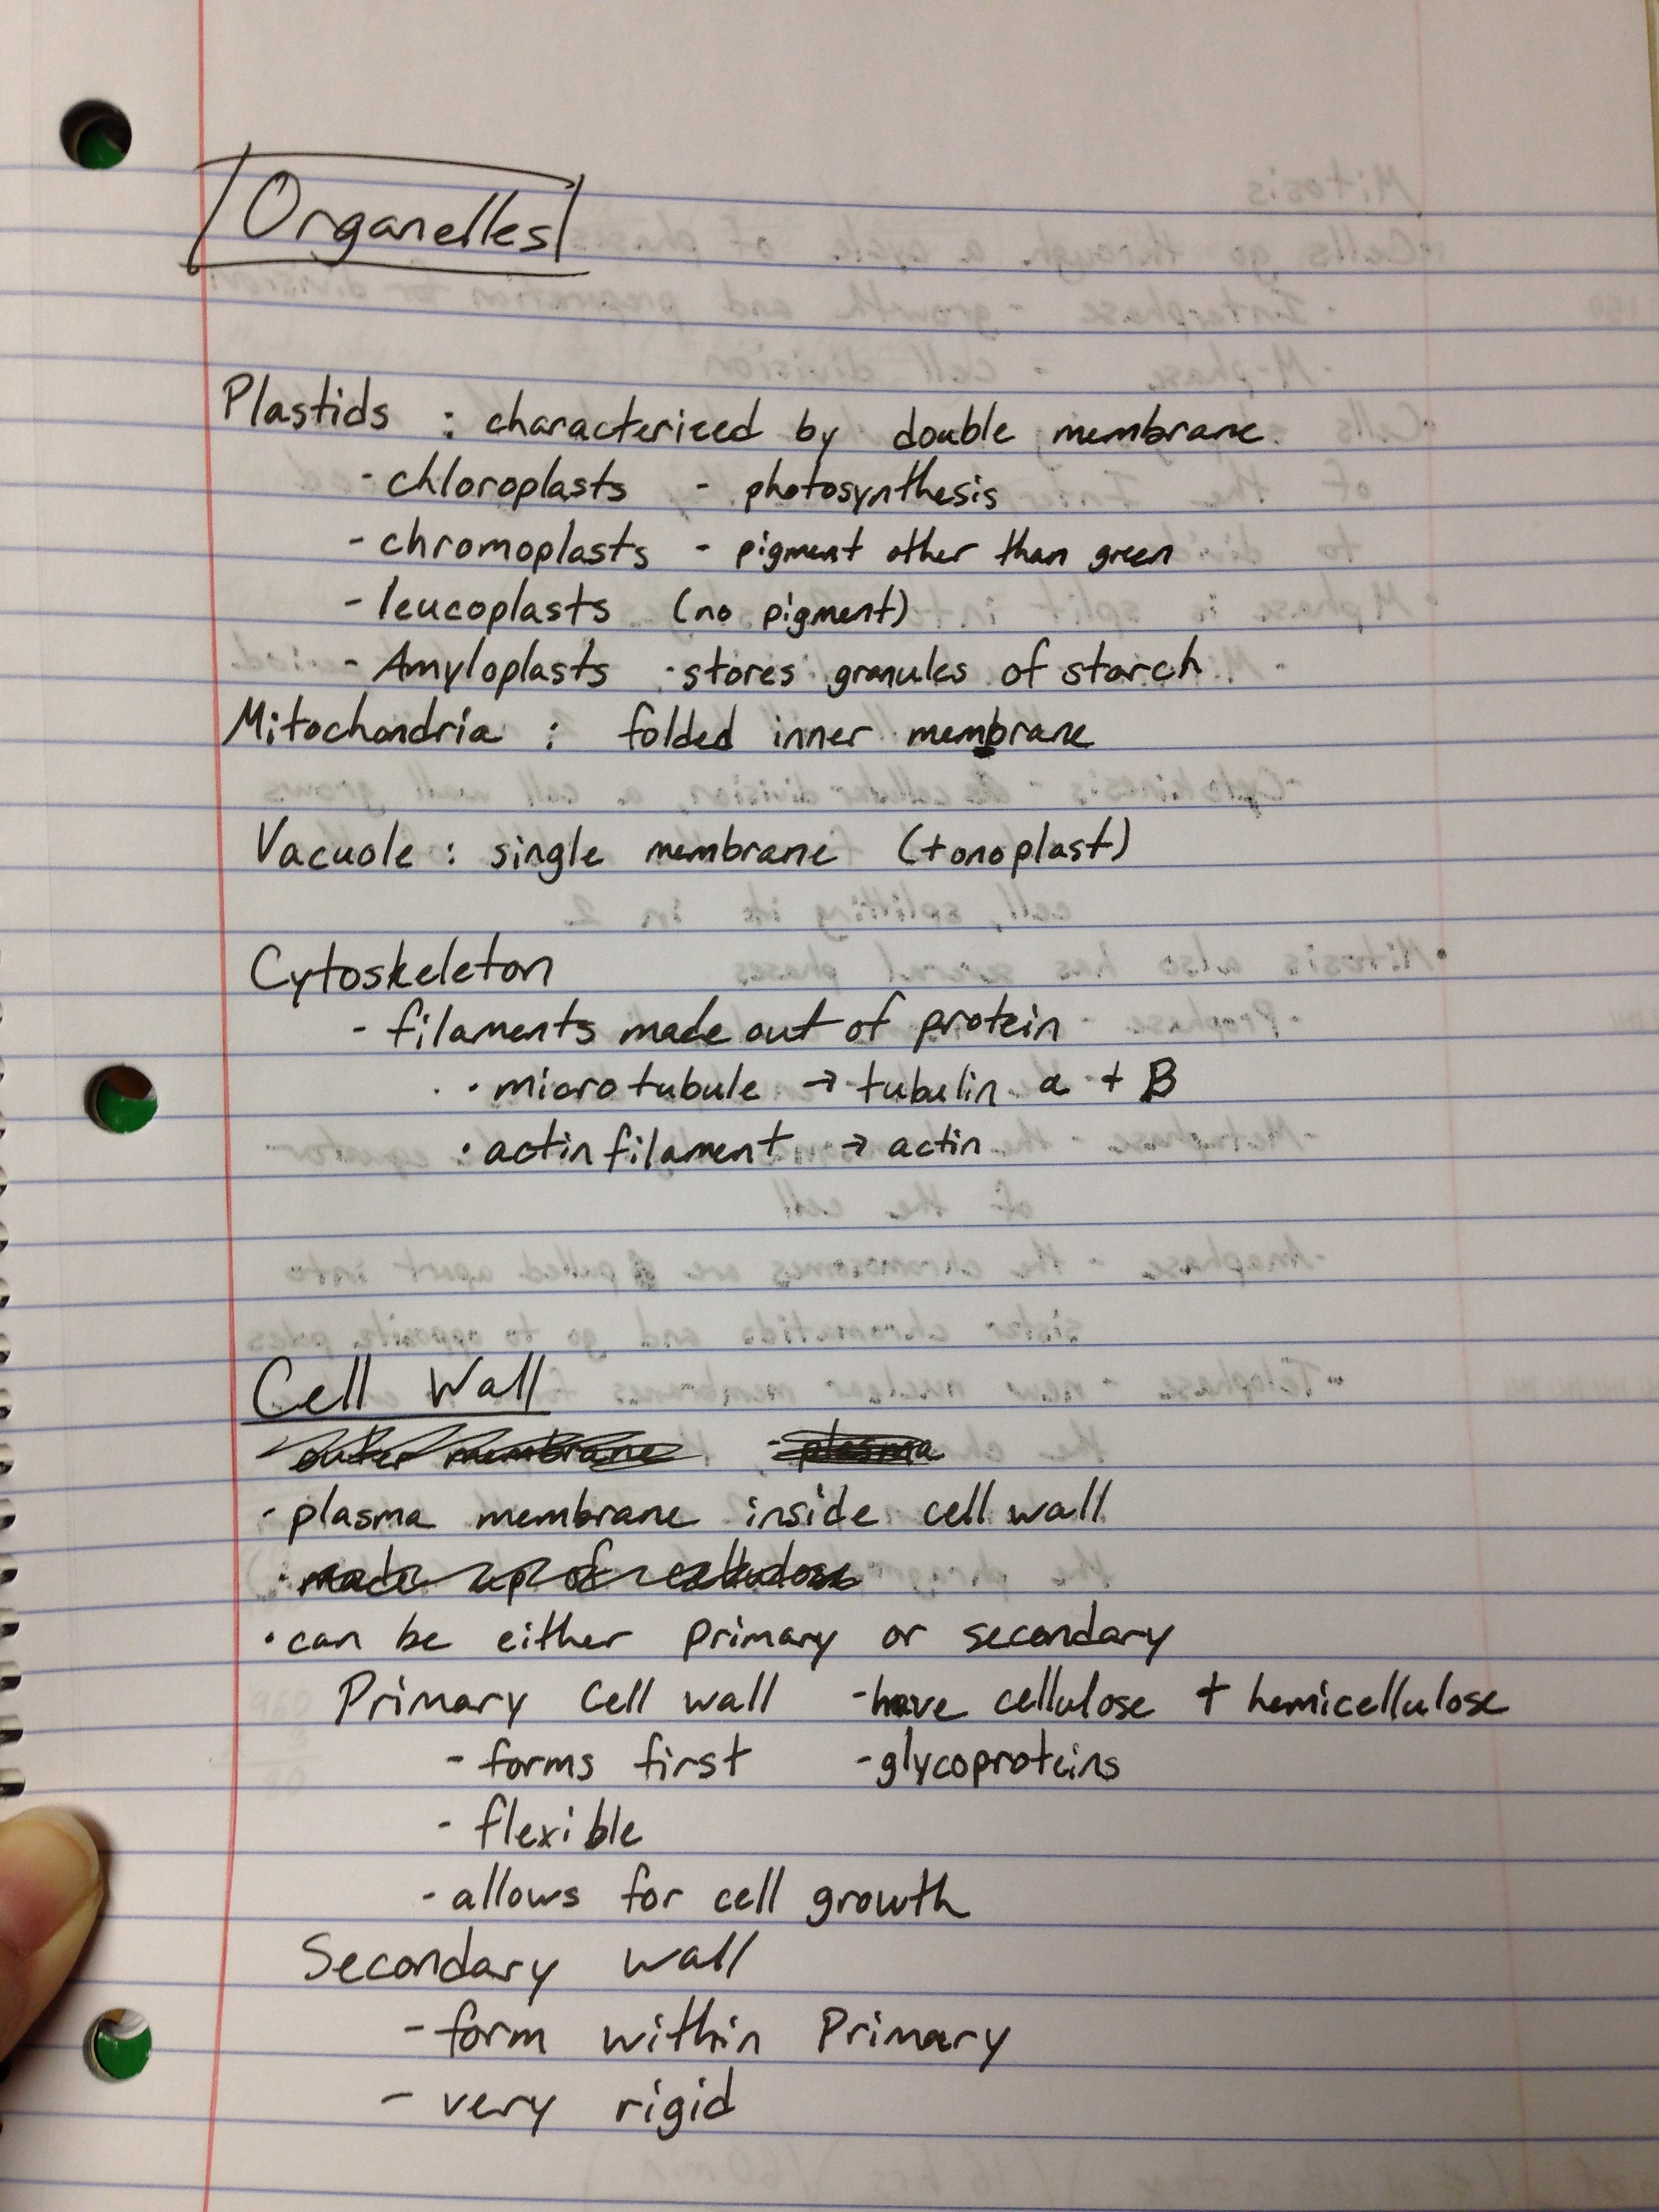 Organelles
Plastids : characterized by double membrane
- chloroplasts - photosynthesis
- chromoplasts - pigment other than green
- leucoplasts (no pigment)
- Amyloplasts · stores granules of starch
Mitochondria : folded inner membrane
Vacuole : single membrane (tonoplast)
Cytoskeleton
- filaments made out of protein
· microtubule → tubulin a + B
· actin filament → actin
Cell Wall
outer membrane - plasma
- plasma membrane inside cell wall
· made up of cellulose
· can be either primary or secondary
Primary Cell wall - have cellulose + hemicellulose
- forms first - glycoproteins
- flexible
- allows for cell growth
Secondary wall
- form within Primary
- very rigid